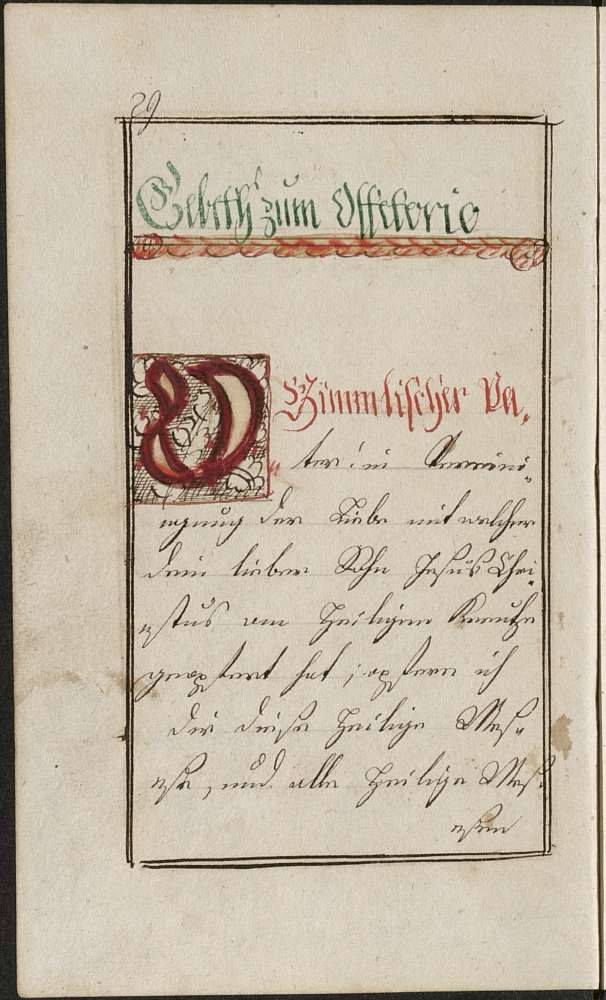 29
Gebeth zum Offertorio
O Himmlischer Va„
ter! in Vereini„
gnung der Liebe mit welcher
dein lieber Sohn Jesus Chri„
stus am Heiligen Kreutze
geopfert hat; opfere ich
dir diese Heilige Mes„
se, und alle Heilige Mes„
sen